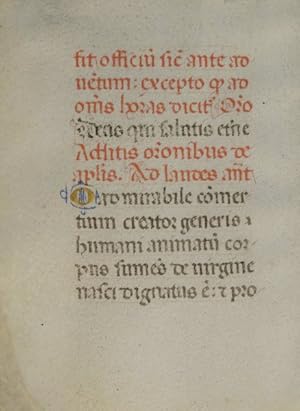 fit officiũ sic̃ ante ad
uẽtum: excepto ꝙ ad
om̃s horas dicit̃ Or̃o
Deus qui salutis etr̃ne
Ac dictis or̃onibus de
ap̃lis. Ad laudes añt
O admirabile cõmer
tium creator generis
humani animatũ cor
pus sumẽs de uirgine
nasci dignatus ẽ: ⁊ pro